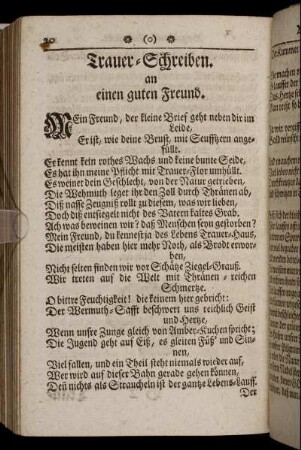 20 ❀ (o) ❀
Trauer-Schreiben.
an
einen guten Freund.
MEin Freund, der kleine Brief geht neben dir im
Leide,
Er ist, wie deine Brust, mit Seufftzern ange-
füllt.
Er kennt kein rothes Wachs und keine bunte Seide,
Es hat ihn meine Pflicht mit Trauer-Flor umhüllt.
Es weinet dein Geschlecht, von der Natur getrieben,
Die Wehmuth leget ihr den Zoll durch Thränen ab,
Diß nasse Zeugniß rollt zu diesem, was wir lieben,
Doch diß entsiegelt nicht des Vatern kaltes Grab.
Ach was beweinen wir? daß Menschen sind gestorben?
Mein Freund, du kennest ja des Lebens Trauer-Haus,
Die meisten haben hier mehr Noth, als Brodt erwor-
ben,
Nicht selten finden wir vor Schätze Ziegel-Grauß.
Wir treten auf die Welt mit Thränen-reichen
Schmertze.
O bittre Feuchtigkeit! die keinem hier gebricht:
Der Wermuth-Safft beschwert uns reichlich Geist
und Hertze,
Wenn unsre Zunge gleich von Amber-Kuchen spricht;
Die Jugend geht auf Eiß, es gleiten Füß' und Sin-
nen,
Viel fallen, und ein Theil steht niemals wieder auf,
Wer wird auf dieser Bahn gerade gehen können,
Deñ nichts als Straucheln ist der gantze Lebens-Lauff.
Der